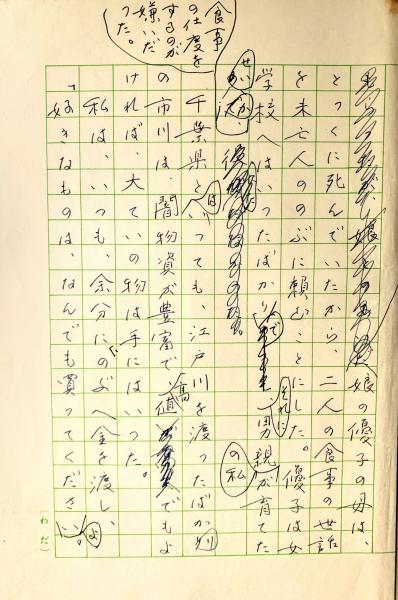 娘の優子の母は、
とっくに死んでいたから、二人の食事の世話
を未亡人ののぶに頼むことにした。優子は女
学校へはいったばかりで それに 男親の私が育てた
せいか、食事の仕度をするのが嫌いだった。
千葉県とはいっても、江戸川を渡ったばかり
の市川は、闇物資が豊富で、高値でもよ
ければ、大ていの物は手にはいった。
私は、いつも、余分にのぶへ金を渡し、
「好きなものは、なんでも買ってくださいよ。
(わだ)